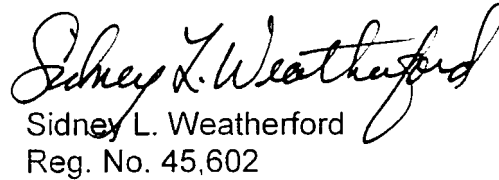 Sidney L. Weatherford
Sidney L. Weatherford
Reg. No. 45,602